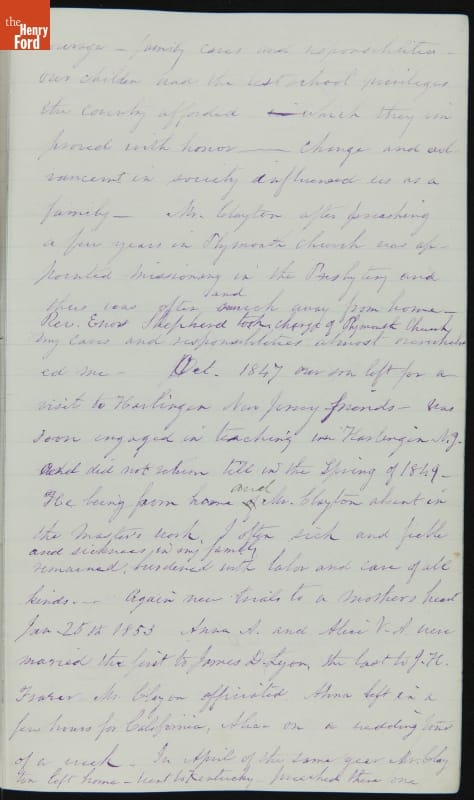 the
Henry
Ford
family cares and responsibilities -
our children had the best school privileges
the country afforded which they im
proved with honor — change and ad
vancement in society influenced us as a
family — Mr. Clayton after preaching
a few years in Plymouth Church was ap-
pointed missionary in the Presbytery and
thus was often and much away from home -
Rev. Enos Shepherd took charge of Plymouth Church
my cares and responsibilities almost overwhelm
ed me - Oct. 1847 our son left for a
visit to Harlingen New Jersey friends - was
soon engaged in teaching in Harlingen N.J.
and did not return till in the Spring of 1849 -
He being from home and Mr. Clayton absent in
the Masters work, I often sick and feeble
and sickness in my family
remained, burdened with labor and care of all
kinds. — Again new trials to a mothers heart
Jan 25th 1853 Anna A. and Alice V. A. were
married the first to James D. Lyon, the last to J. H.
Frazer Mr. Clayon officiated Anna left in a
few hours for California, Alice on a wedding tour
of a week - In April of the same year Mr. Clay
ton left home - went to Kentucky - preached there one